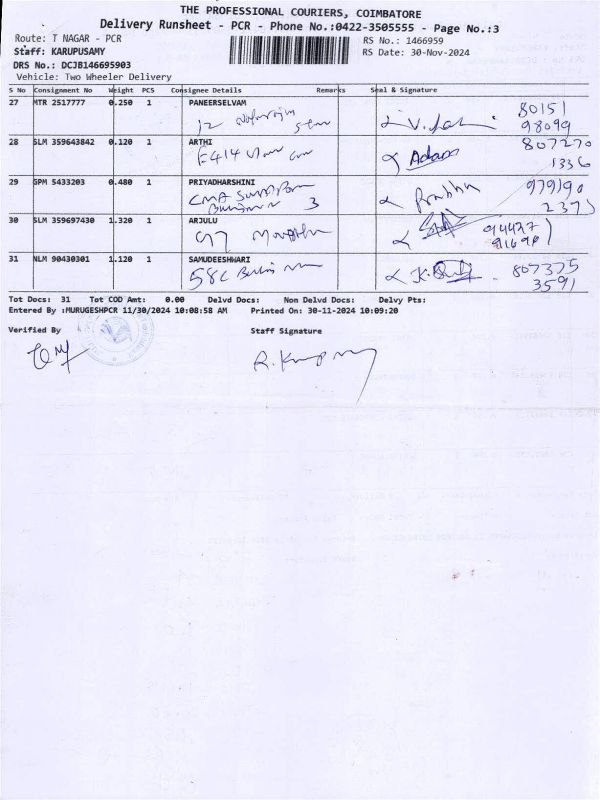 THE PROFESSIONAL COURIERS, COIMBATORE
Delivery Runsheet - PCR - Phone No.:0422-3505555 - Page No.:3
Route: T NAGAR - PCR
RS No.: 1466959
Staff: KARUPUSAMY
RS Date: 30-Nov-2024
DRS No.: DCJB146695903
Vehicle: Two Wheeler Delivery
S No Consignment No Weight PCS Consignee Details Remarks Seal & Signature
27 MTR 2517777 0.250 1 PANEERSELVAM
12
80151
98099
28 SLM 359643842 0.120 1 ARTHI
E414
807270
1336
29 GPM 5433203 0.480 1 PRIYADHARSHINI
3
Prabhu
979190
2375
30 SLM 359697430 1.320 1 ARJULU
97
94427
91696
31 NLM 90430301 1.120 1 SAMUDEESHWARI
58C
807375
3591
Tot Docs: 31 Tot COD Amt: 0.00 Delvd Docs: Non Delvd Docs: Delvy Pts:
Entered By :MURUGESHPCR 11/30/2024 10:08:58 AM Printed On: 30-11-2024 10:09:20
Verified By Staff Signature